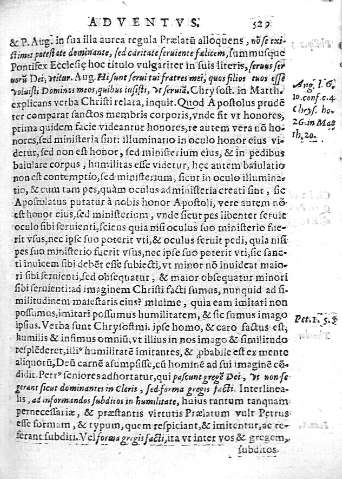 ADVENTVS. 529
& P. Aug. in sua illa aurea regula Prælatũ alloquens, nõ se exi-
stimet potestate dominante, sed caritate seruiente fœlicem, summusque
Pontifex Ecclesię hoc titulo vulgariter in suis literis, seruus ser-
uorũ Dei, vtitur. Aug. Hi sunt serui tui fratres mei, quos filios tuos esse
voluisti Dominos meos, quibus iussisti, vt seruiã. Chrysost. in Matth.
explicans verba Christi relata, inquit. Quod Apostolus prudẽ
ter comparat sanctos membris corporis, vnde sit vt honores,
prima quidem facie videantur honores, re autem vera nõ ho-
nores, sed ministeria sint: illuminatio in oculo honor eius vi-
detur, sed non est honor, sed ministerium eius, & in pedibus
baiulare corpus, humilitas esse videtur, hęc autem baiulatio
non est contemptio, sed ministerium, sicut in oculo illumina-
tio, & cum tam pes, quàm oculus ad ministeria creati sint, sic
Apostolatus putatur à nobis honor Apostoli, vere autem nõ
est honor eius, sed ministerium, vnde sicut pes libenter seruit
oculo sibi seruienti, sciens quia nisi oculus suo ministerio fue-
rit vsus, nec ipse suo poterit vti, & oculus seruit pedi, quia nisi
pes suo ministerio fuerit vsus, nec ipse suo poterit vti, sic san-
cti inuicem sibi debẽt esse subiecti, vt minor nõ inuideat maio-
ri sibi seruienti, sed obsequatur, & maior obsequatur minori
sibi seruienti: ad imaginem Christi facti sumus, nunquid ad si-
militudinem maiestatis eius? minime, quia eam imitari non
possumus, imitari possumus humilitatem, & sic sumus imago
ipsius. Verba sunt Chrysostmi. ipse homo, & caro factus est,
humilis & infimus omniũ, vt illius in nos imago & similitudo
resplẽderet, illi⁹ humilitatẽ imitantes, & ꝓbabile est ex mente
aliquorũ, Deũ carnẽ assumpsisse, cũ hominẽ ad sui imaginẽ cõ-
didit. Petr⁹ seniores adhortatur, qui pascunt gregẽ Dei, vt non se
gerant sicut dominantes in Cleris, sed forma gregis facti. Interlinea-
lis, ad informandos subditos in humilitate, huius tantum tanquam
pernecessariæ, & præstantis virtutis Prælatum vult Petrus
esse formam, & typum, quem respiciant, & imitentur, ac re-
ferant subditi. Vel forma gregis facti, ita vt inter vos & gregem,
subditos
Aug. l. 6.
10. conf. c. 4
Chrys. ho.
26. in Mat
th. 20.
Pet. 1. 5. 8